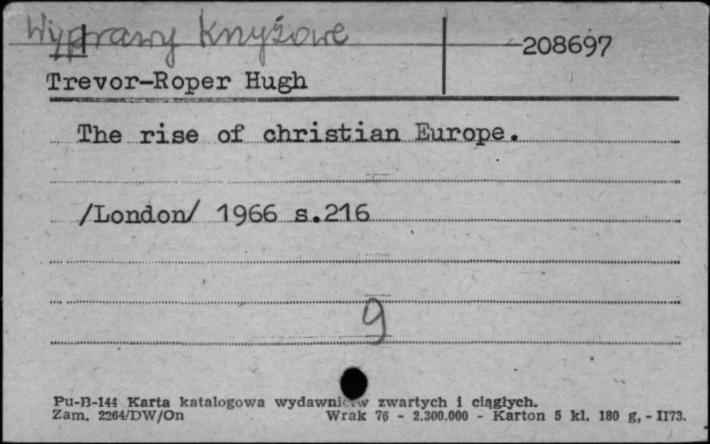 Wyprawy Krzyżowe
208697
Trevor-Roper Hugh
The rise of christian Europe.
/London/ 1966 s.216
9
Pu-B-144 Karta katalogowa wydawnictw zwartych i ciągłych.
Zam. 2264/DW/On Wrak 76 - 2.300.000 - Karton 5 kl. 180 g, - II73.